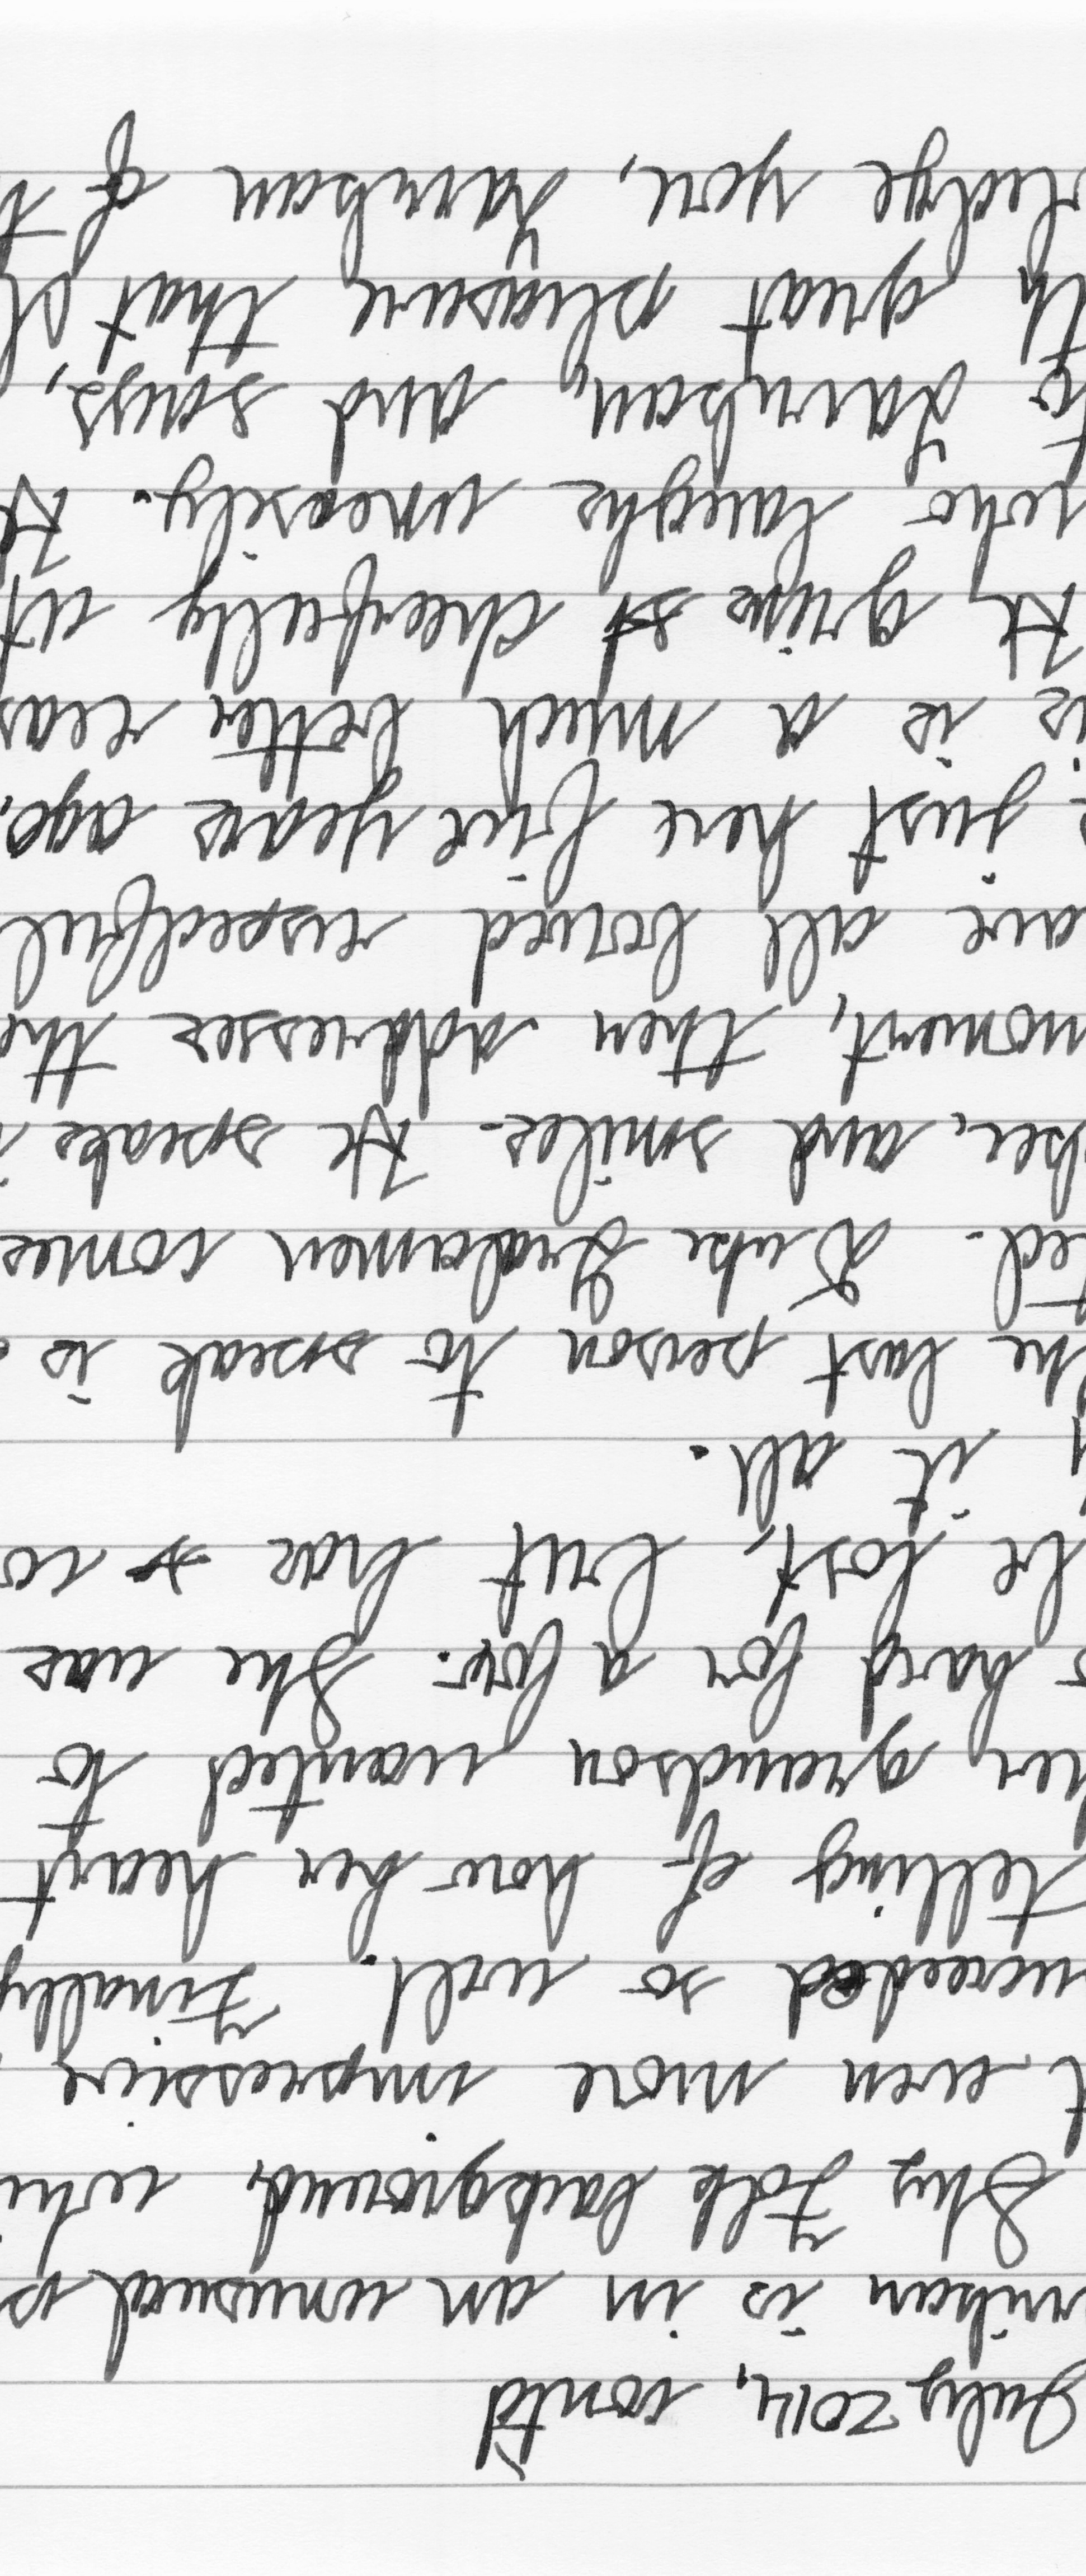 July 2014, cont'd
is in an unusual
Shy Folk background, whi
t even more impressive
ucceeded so well. Finally
telling of how her heart
her grandson wanted to
o hard for a fox. She was
be lost, but has co
it all.
The last person to speak is
ted. Duke Gralamen comes
her, and smiles. He speaks i
moment, then addresses the
ave all bowed respectful
e just here five years ago.
is is a much better reas
He grins cheerfully at
who laughs uneasily. He
to and says,
th great pleasure that pl
ledge you, of t